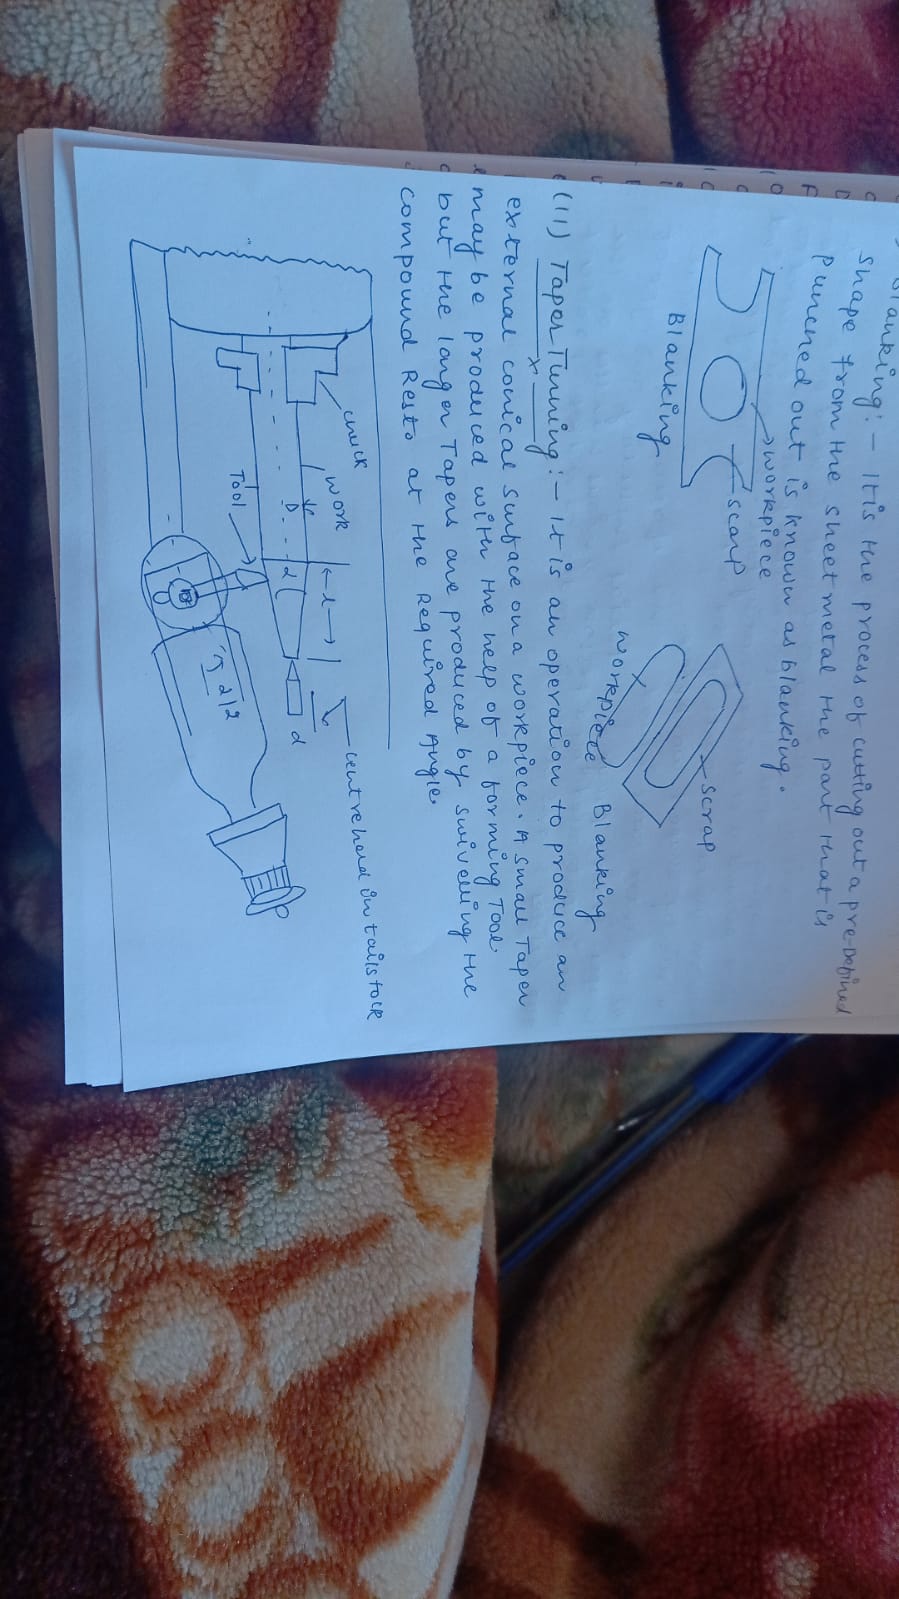 Blanking:- It is the process of cutting out a pre-Defined
shape from the sheet metal the part that is
punched out is known as blanking.
workpiece
scarp
Blanking
scrap
workpiece
Blanking
(11) Taper Turning:- It is an operation to produce an
external conical surface on a workpiece. A small Taper
may be produced with the help of a forming Tool
but the larger Tapers are produced by swivelling the
compound Rests at the Required Angle.
chuck
work
centre held in tailstock
D
d
l
d
Tool
d/2